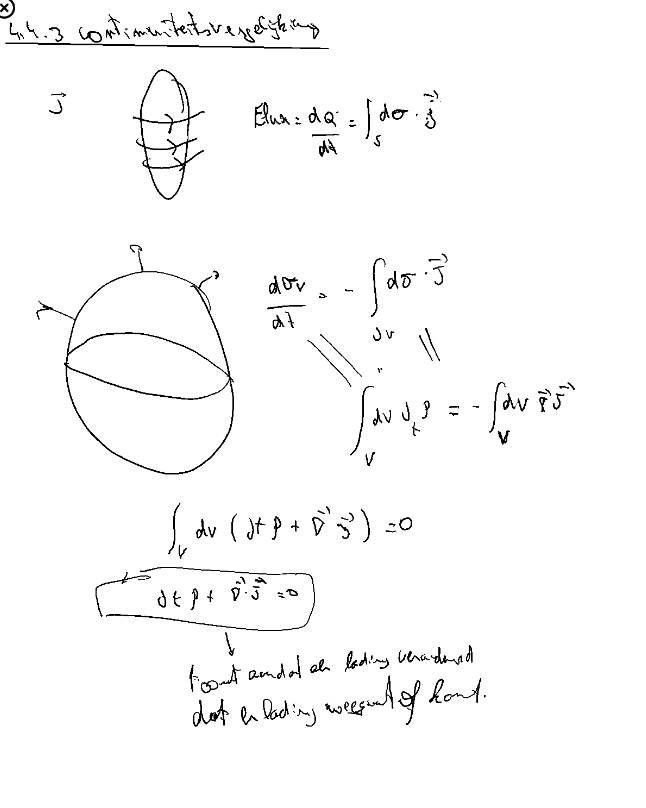 4.4.3 continuiteitsvergelijking
J⃗
Flux = dQ/dt = ∫_S dσ · j⃗
dQ_V/dt = - ∫_∂V dσ · J⃗
∫_V dV ∂_t ρ = - ∫_V dV ∇⃗ J⃗
∫_V dV (∂t ρ + ∇⃗ J⃗) = 0
∂t ρ + ∇⃗ · J⃗ = 0
lading
dat er lading weggaat of komt.